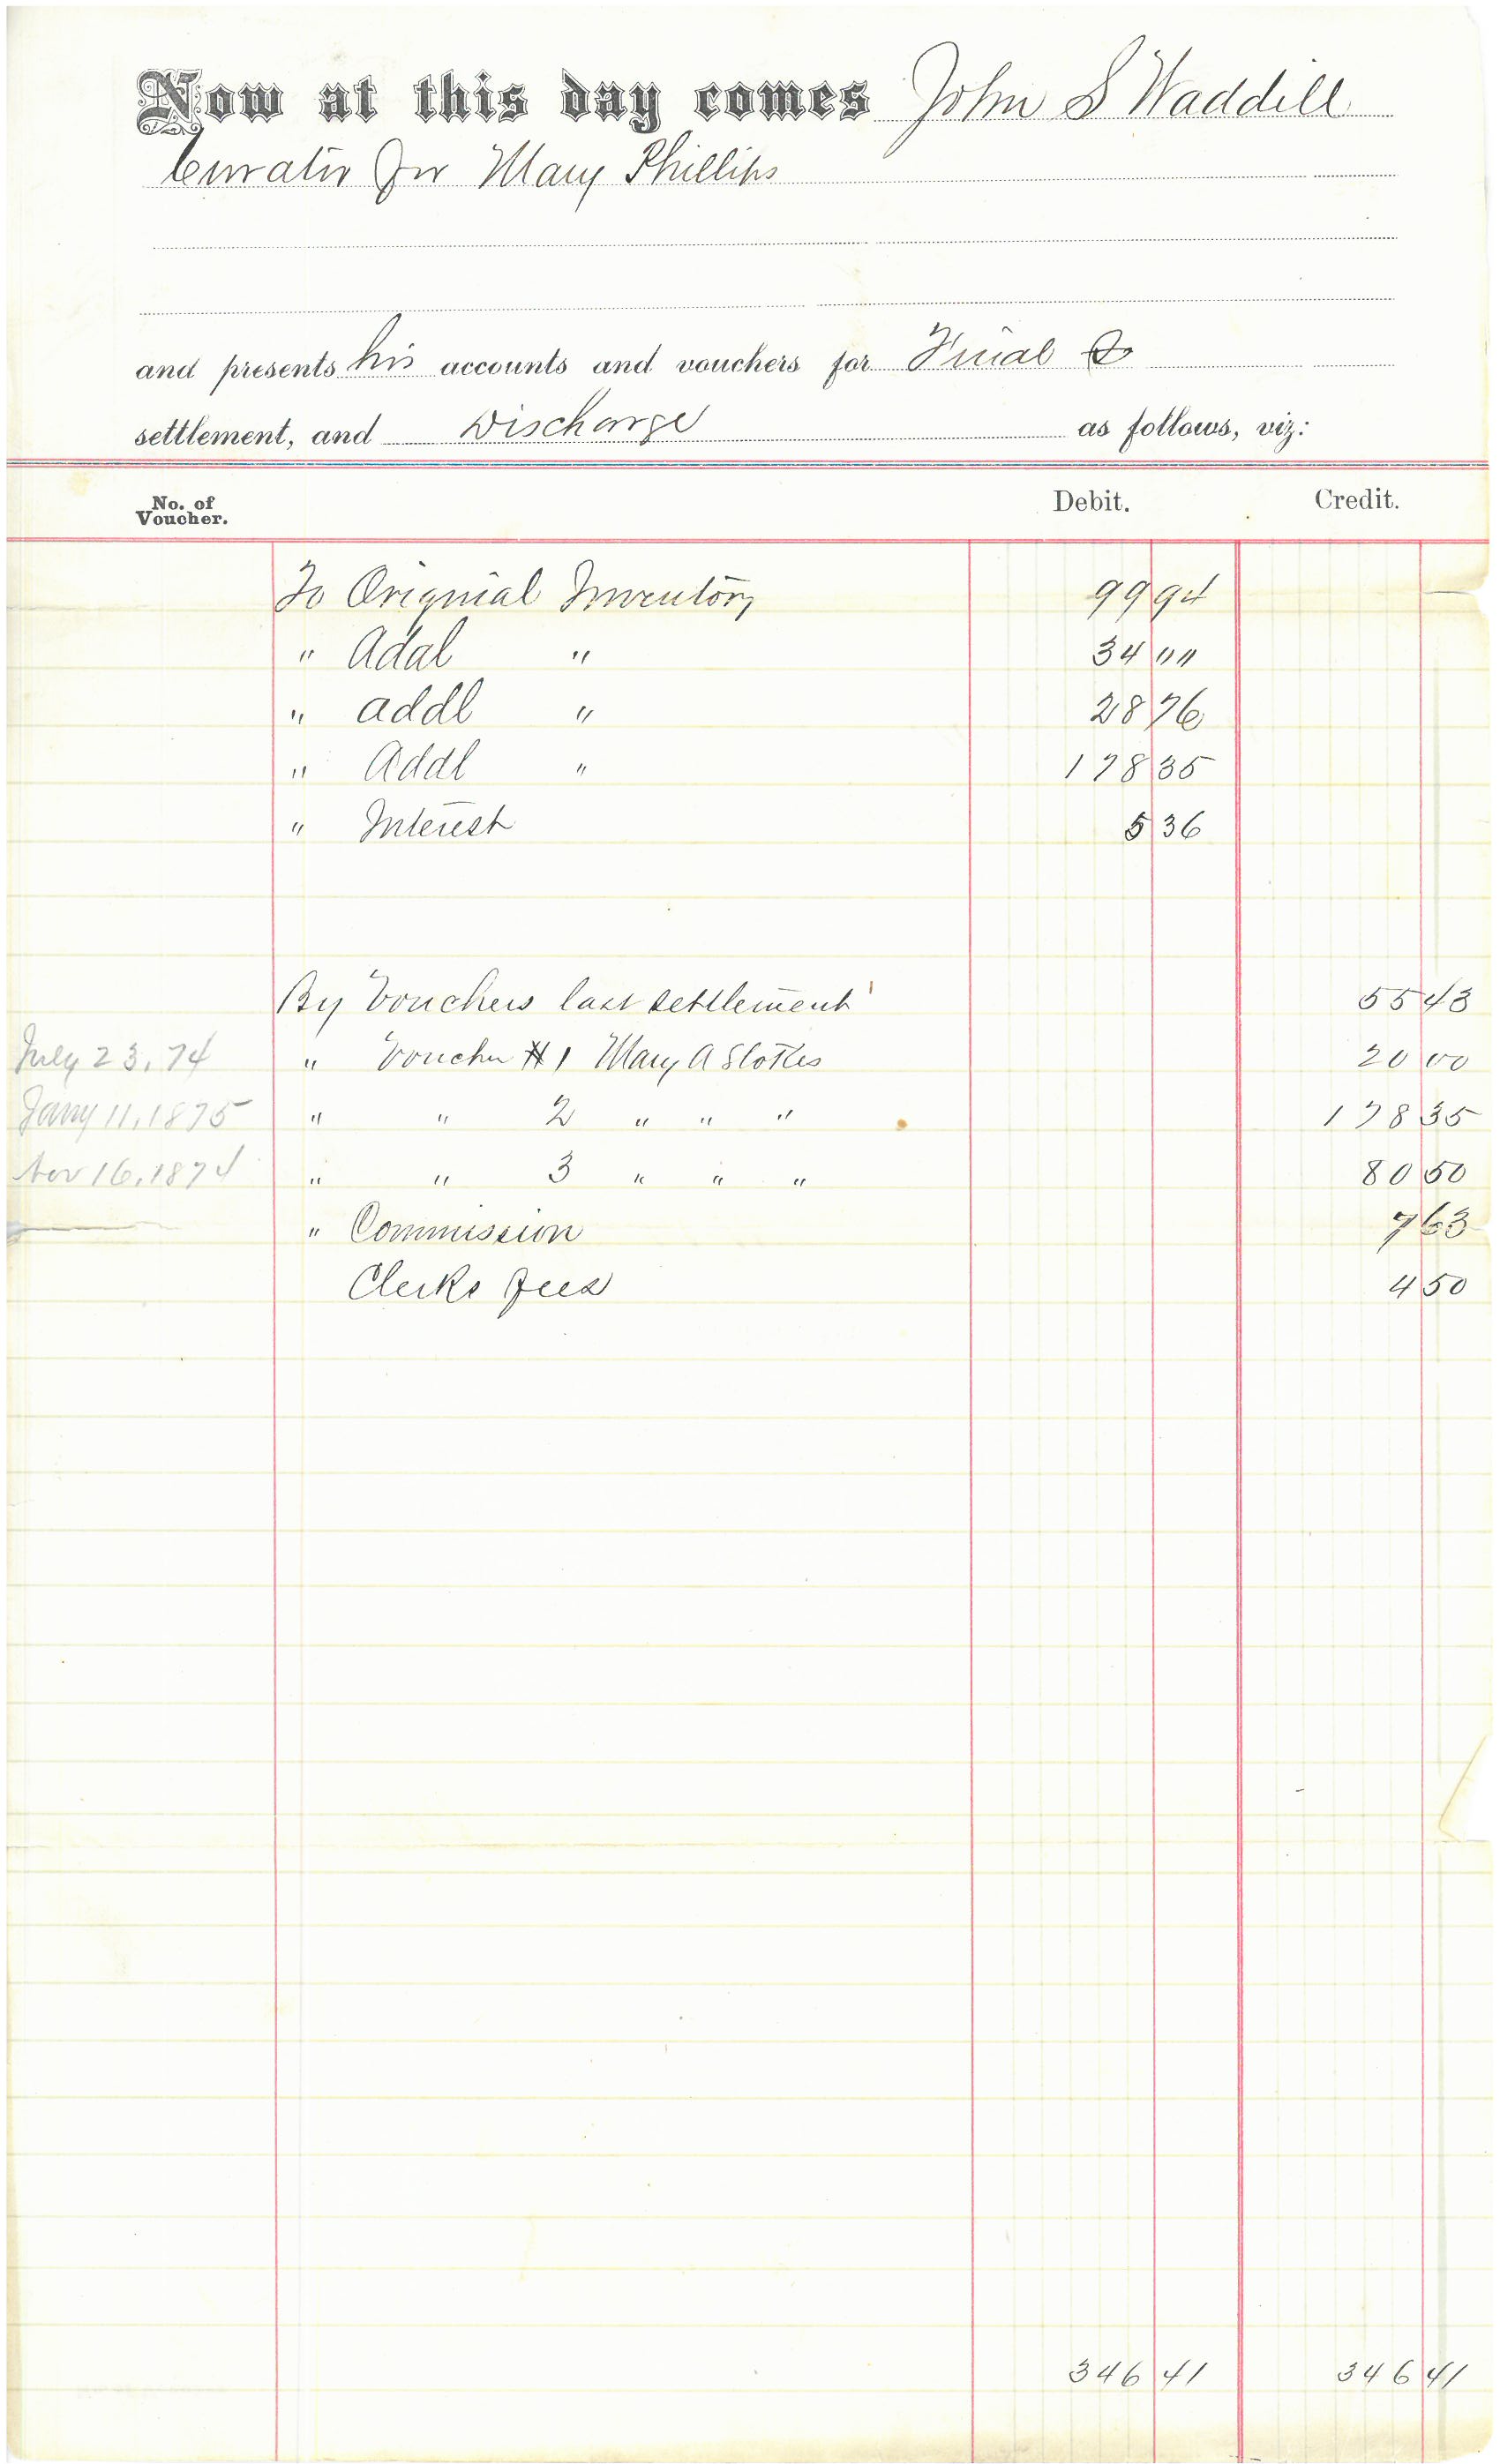 Now at this day comes John S Waddill
Curator for Mary Phillips
and presents his accounts and vouchers for Final &
settlement, and Discharge as follows, viz:
No. of Voucher. Debit. Credit.
To Original Inventory 99 94
" Adal " 34 ""
" addl " 28 76
" Addl " 178 35
" Interest 5 36
By Vouchers last settlement 55 43
July 23, 74 " Voucher #1 Mary A Stokes 20 00
Jany 11, 1875 " " 2 " " " 178 35
Nov 16, 1874 " " 3 " " " 80 50
" Commission 7 63
Clerks fees 4 50
346 41 346 41